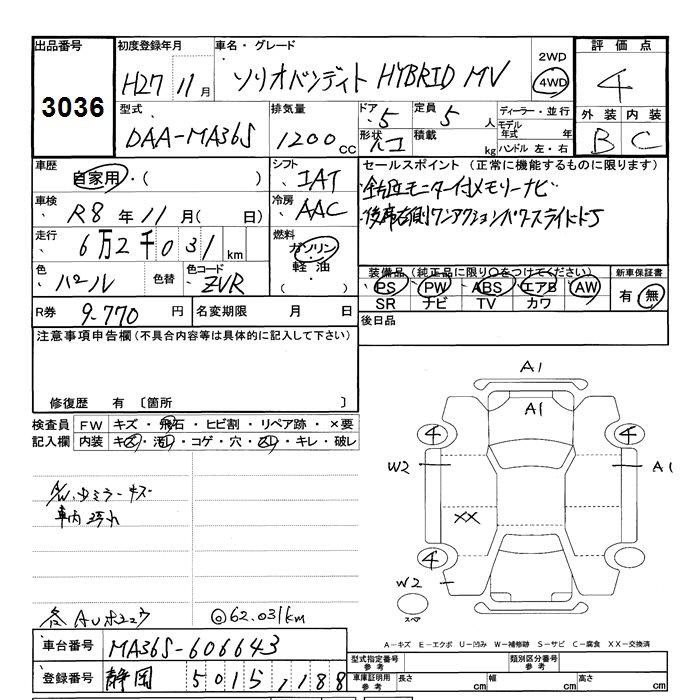 出品番号
3036
初度登録年月
H27年 11月
車名・グレード
ソリオバンディト HYBRID MV
2WD
4WD
評価点
4
外装 内装
B C
型式
DAA-MA36S
排気量
1200 cc
ドア
5
定員
5 人
形状
積載
kg
ディーラー・並行
モデル年式 年
ハンドル 左・右
車歴
自家用・( )
シフト
IAT
セールスポイント (正常に機能するものに限ります)
・全方位モニター付メモリーナビ
・後席右側ワンアクションパワースライドドア
車検
R8年11月( 日)
冷房
AAC
走行
6万2千031km
燃料
ガソリン
軽油
( )
色
パール
色替
色コード
ZVR
装備品 (純正品に限り○をつけてください)
PS PW ABS エアB AW
SR ナビ TV カワ
新車保証書
有・無
R券
9.770円
名変期限 月 日
後日品
注意事項申告欄 (不具合内容等は具体的に記入して下さい)
修復歴 有 〔箇所 〕
検査員 FW キズ・飛石・ヒビ割・リペア跡・×要
記入欄 内装 キズ・汚れ・コゲ・穴・スレ・キレ・破レ
A/W、Dミラーキズ
車内汚れ
各AUポエコウ
◎62.031km
A1
A1
4
4
W2
A1
XX
4
W2
スペア
A-キズ E-エクボ U-凹み W-補修跡 S-サビ C-腐食 XX-交換済
車台番号
MA36S-606643
登録番号
静岡 501 5 1 1 8 8
型式指定番号
参考
類別区分番号
参考
車庫証明用
参考
長さ cm
幅 cm
高さ cm